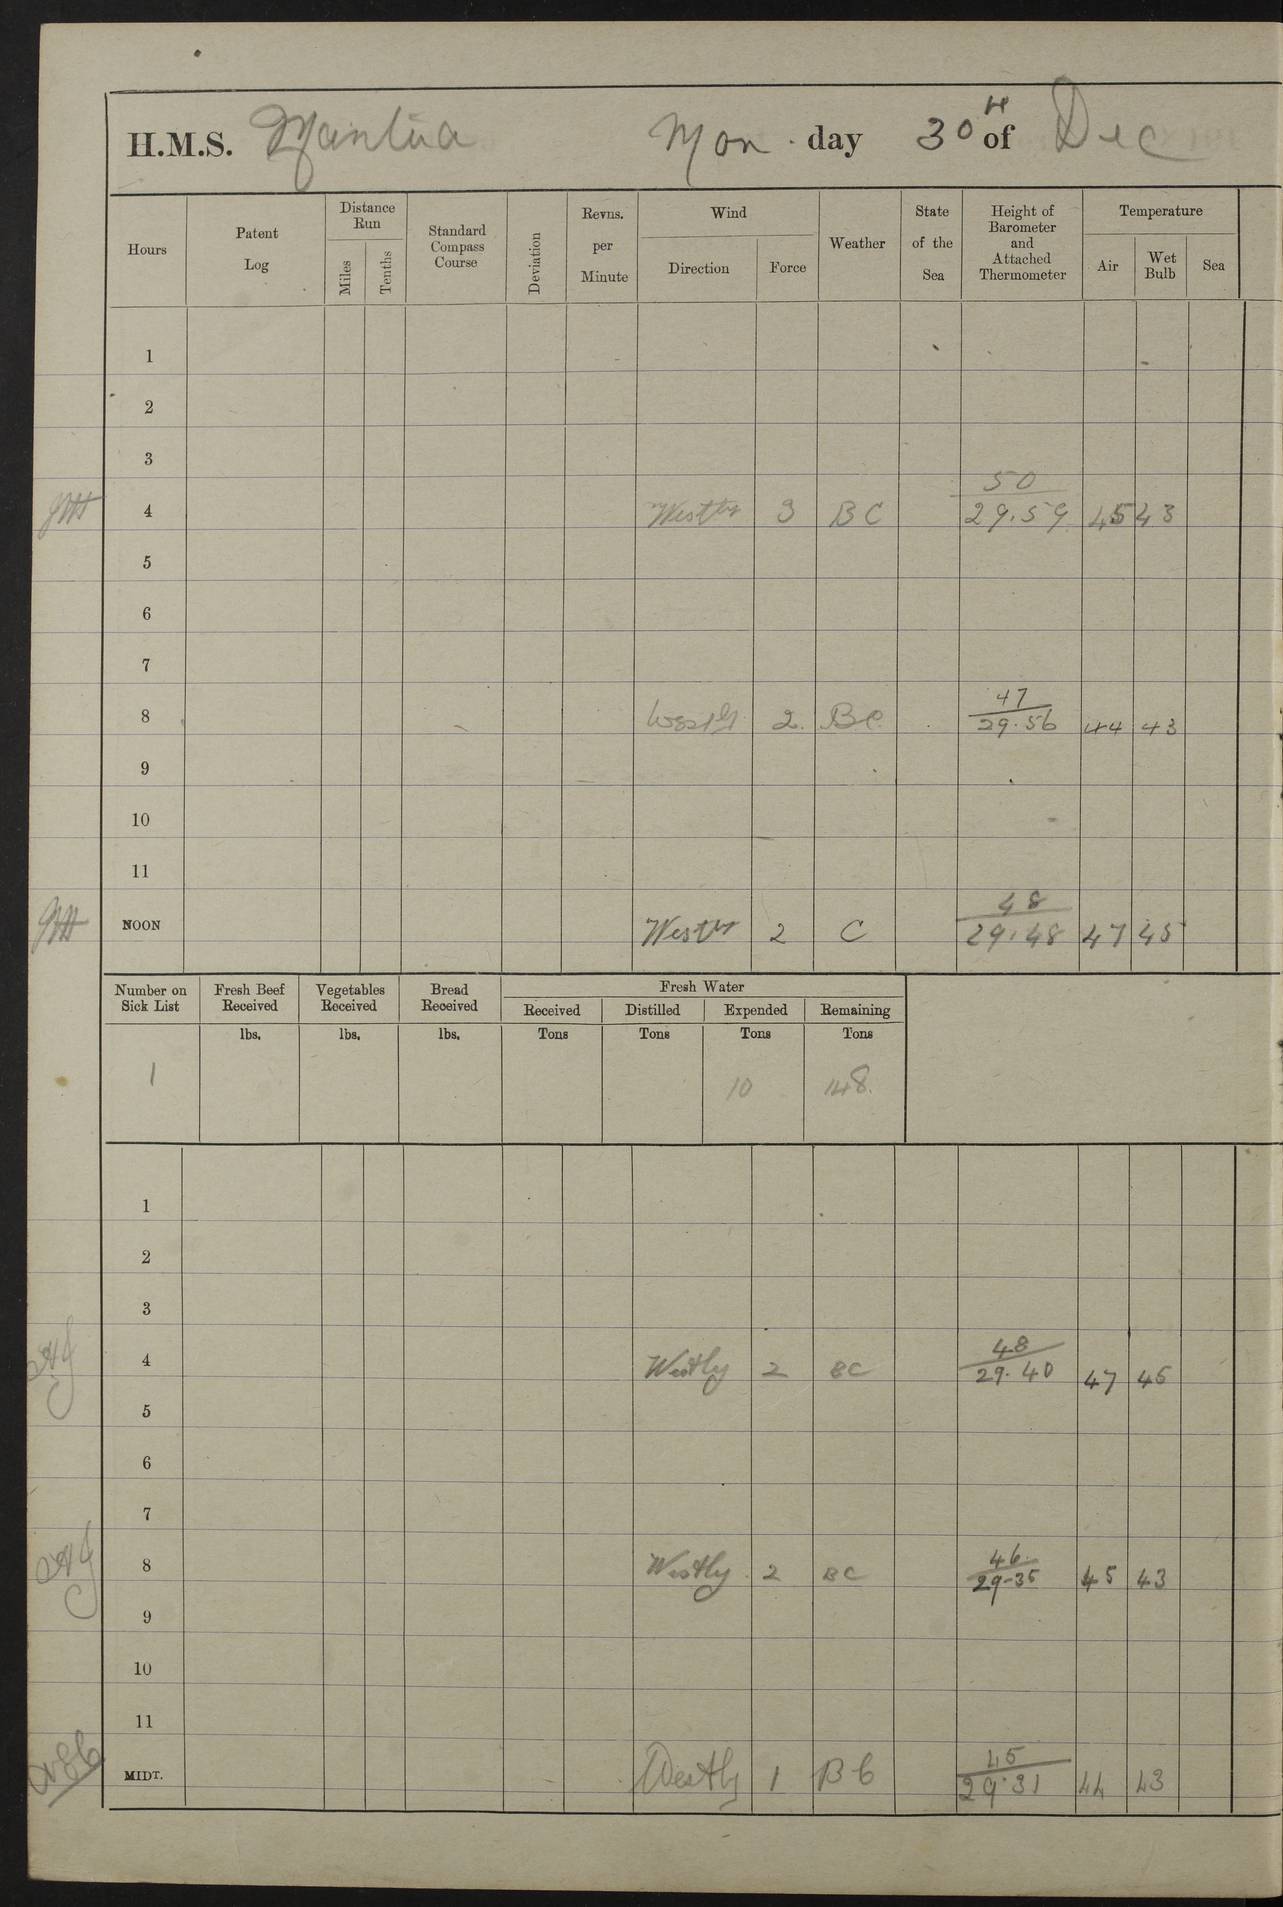 H.M.S. Mantua Mon. day 30th of Dec
Hours Patent Log Distance Run Miles Tenths Standard Compass Course Deviation Revns. per Minute Wind Direction Force Weather State of the Sea Height of Barometer and Attached Thermometer Temperature Air Wet Bulb Sea
1
2
3
50
4 Westly 3 BC 29.59 45 43
5
6
7
47
8 Westly 2 BC 29.56 44 43
9
10
11
48
NOON Westly 2 C 29.48 47 45
Number on Sick List Fresh Beef Received Vegetables Received Bread Received Fresh Water
Received Distilled Expended Remaining
lbs. lbs. lbs. Tons Tons Tons Tons
1 10 148.
1
2
3
48
4 Westly 2 BC 29.40 47 45
5
6
7
46
8 Westly 2 BC 29-35 45 43
9
10
11
45
MIDT. Westly 1 BC 29.31 44 43